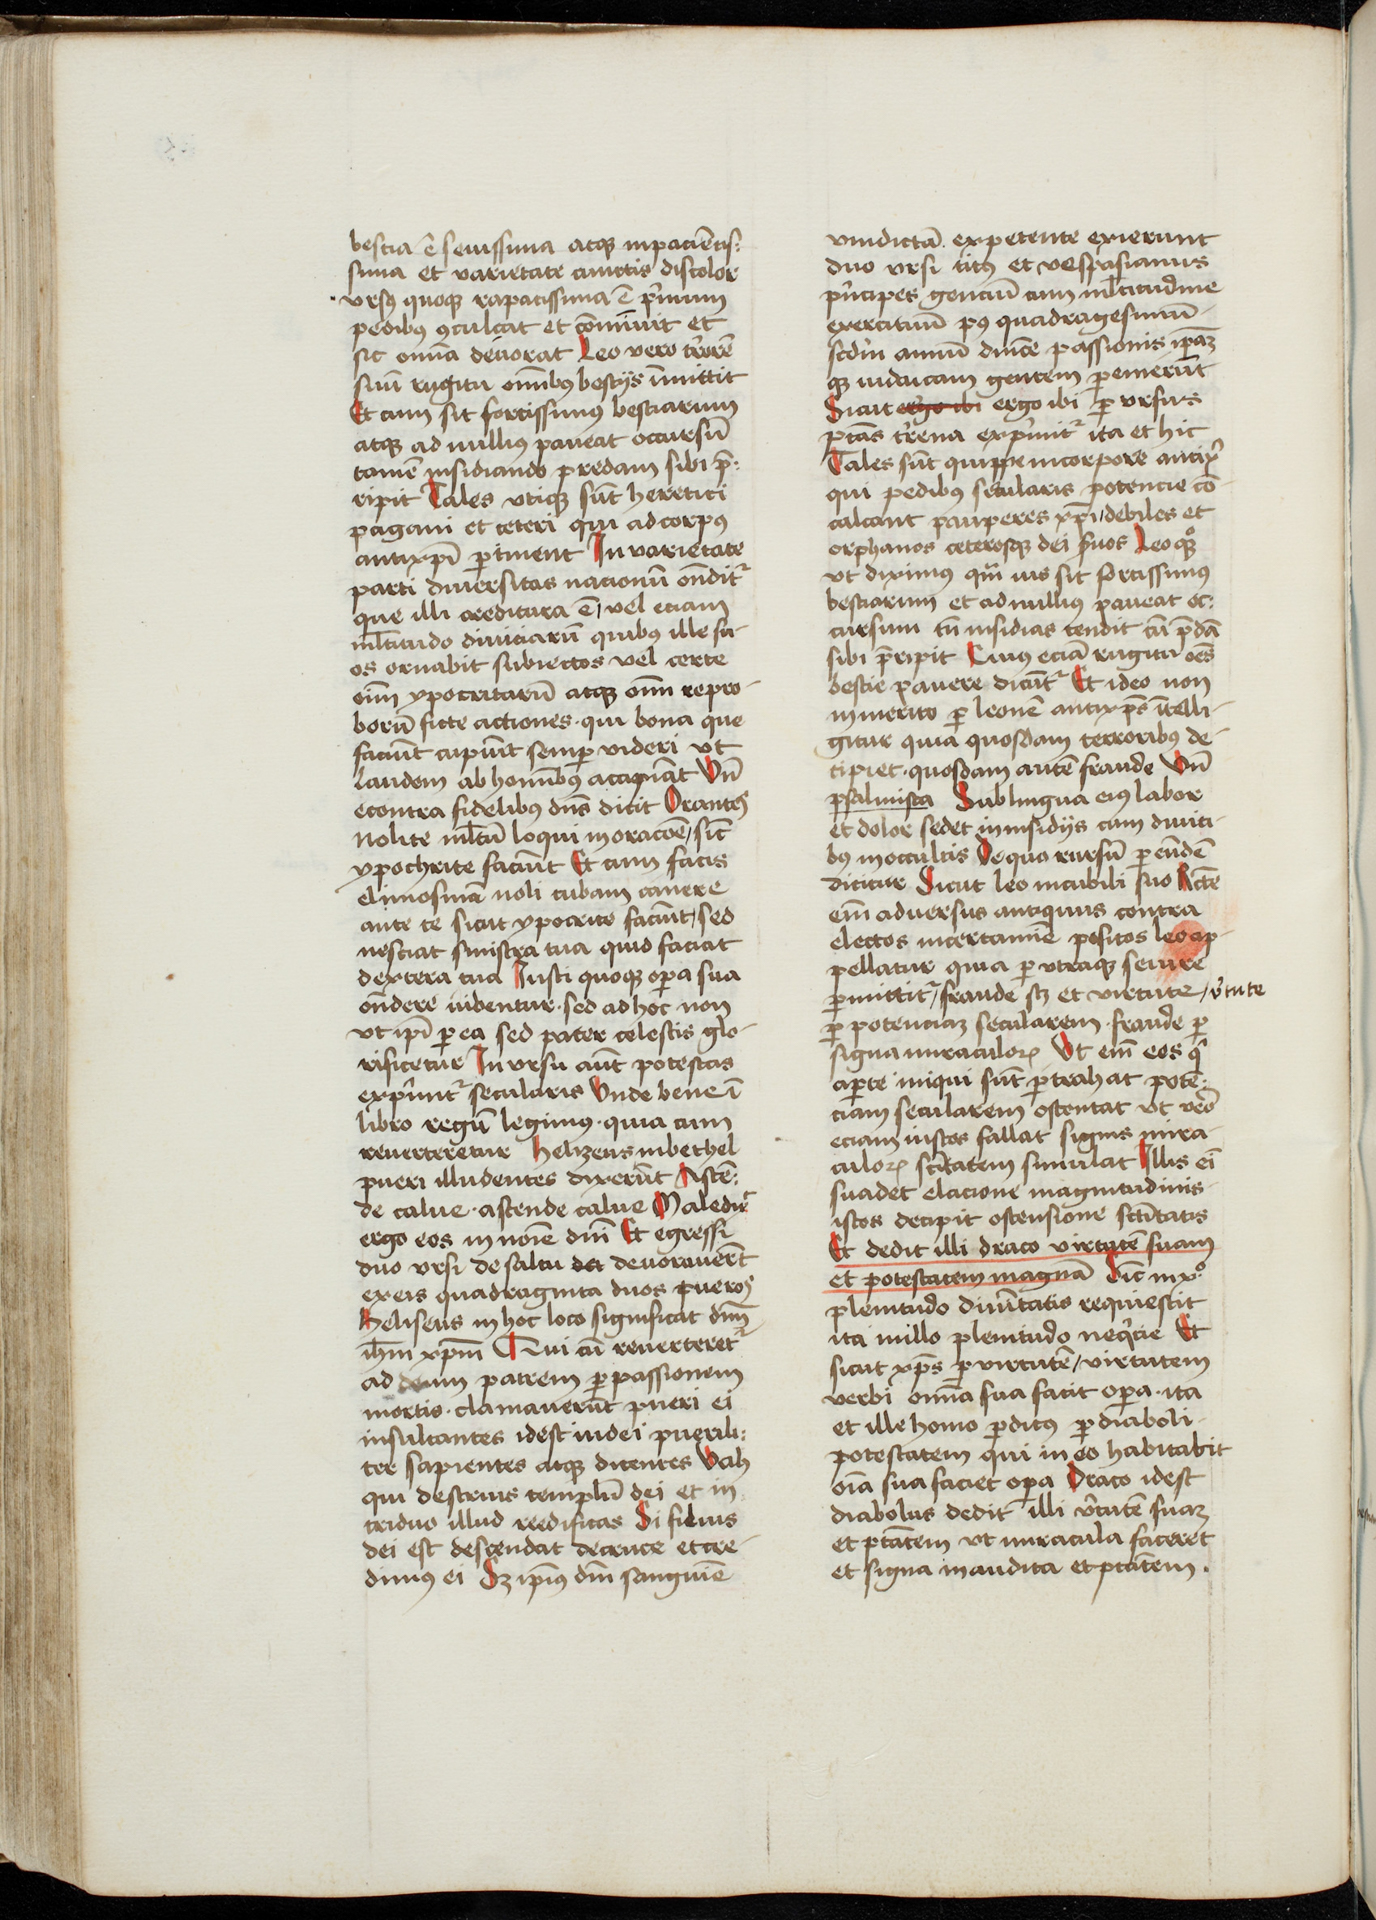 bestia ē seuissima atq̃ inpaciētis:
sima et varietate cunctis discolor
vrsꝰ quoq̃ rapacissima ē pͥmum
pedibꝰ ꝯculcat et cōminuit et
sic omīa deuorat Leo vero tͬrorē
suū rugitu om̄ibꝰ bestijs īmittit
Et cum sit fortissimꝰ bestiarum
atq̃ ad nullius paueat occursū
tamē insidiando predam sibi p̄:
ripit Tales vtiq̃ sūt heretici
pagani et ceteri qui ad corpꝰ
antixp̄i ꝑtinent In varietate
parti diuersitas nacionū ōnditᷣ
que illi creditura ē / vel eciam
ml̄titudo diuiciarū quibꝰ ille su-
os ornabit subiectos vel certe
oīm ypocritarū atq̃ oīm repro-
borū ficte actiones · qui bona que
faciūt cupiūt semꝑ videri vt
laudem ab hominibꝰ acquirāt Vn̄
econtra fidelibꝰ dn̄s dicit Orantes
Nolite ml̄tū loqui in oracōe / sic̄
ypochrite faciūt Et cum facis
elimosinā noli tubam canere
ante te sicut ypocrite faciūt / sed
nesciat sinistra tua quid faciat
dextera tua Iusti quoq̃ oꝑa sua
ōndere iubentur · sed ad hoc non
vt ip̄i ꝑ ea sed pater celestis glo-
rificetur In vrsu aūt potestas
expͥmitᷣ secularis Vnde bene ī
libro regū legimꝰ · quia cum
reuerteretur helizeus in bethel
pueri illudentes dixerūt Ascē:
de calue · ascende calue Maledixͭ
ergo eos in noīe dn̄i Et egressi
duo vrsi de saltu det deuorauerūt
ex eis quadraginta duos pueros
Heliseus in hoc loco significat dn̄m
ih̄m xp̄m Qui cū reuerteretᷣ
ad deum patrem ꝑ passionem
mortis · clamauerūt pueri ei
insultantes idest iudei puerili:
ter sapientes atq̃ dicentes Vah
qui destruis templū dei et in
triduo illud reedificas Si filius
dei est descendat de cruce et cre-
dimꝰ ei Sꝫ ip̄ius dn̄i sanguīe
vindictā expetente exierunt
duo vrsi titꝰ et vespasianus
pͥncipes genciū cum ml̄titudine
exercituū pꝰ quadragesimū
scd̄m annū dn̄ice passionis ip̄aꝫ
q̃ iudaicam gentem ꝑemerūt
Sicut ergo ibi ergo ibi ꝑ vrsus
ptās tͬrena expͥmitᷣ ita et hic
Tales sūt quippe in corpore antixͥ
qui pedibꝰ secularis potencie cō
calcant pauperes xp̄i / debiles et
orphanos ceterosq̃ dei s̄uos Leo qͦꝫ
vt diximꝰ qm̄ uis sit fortissimꝰ
bestiarum et ad nullius paueat oc:
cursum tn̄ insidias tendit cū p̄dā
sibi p̄ripit Cuiꝰ eciā rugitu oēs
bestie pauere dicūtᷣ Et ideo non
inmerito ꝑ leonē antixp̄s ītelli-
gitur quia quosdam terroribus de-
cipiet · quosdam autē fraude Vn̄
psalmista Sub lingua eiꝰ labor
et dolor sedet in insidijs cum diuiti-
bꝰ in occultis De quo rursū ꝑ eūdē
dicitur Sicut leo in cubili suo Recte
em̄ aduersus antiquus contra
electos in certamīe positos leo ap-
pellatur quia ꝑ vtraq̃ seuire
ꝑmittitᷣ / fraude sꝫ et virtute / v̓tute
ꝑ potenciaꝫ secularem · fraude ꝑ
signa miraculoꝝ Vt em̄ eos qͥ
aꝑte iniqui sūt ꝑtrahat potē:
ciam secularem ostentat vt vero
eciam iustos fallat signis mira-
culoꝝ sc̄itatem simulat Illis ei
suadet elacione magnitudinis
istos decipit ostensione sc̄itatis
Et dedit illi draco virtutē suam
et potestatem magnā Sic̄ in xͦ
plenitudo diuītatis requiescit
ita in illo plenitudo neqͥcie Et
sicut xp̄s ꝑ virtutē / virtutem
verbi omīa sua facit oꝑa · ita
et ille homo ꝑditꝰ ꝑ diaboli
potestatem qui in eo habitabit
oīa sua faciet oꝑa Draco idest
diabolus dedit illi v̓tutē suaꝫ
et ptātem vt miracula faceret
et signa inaudita et ptātem .